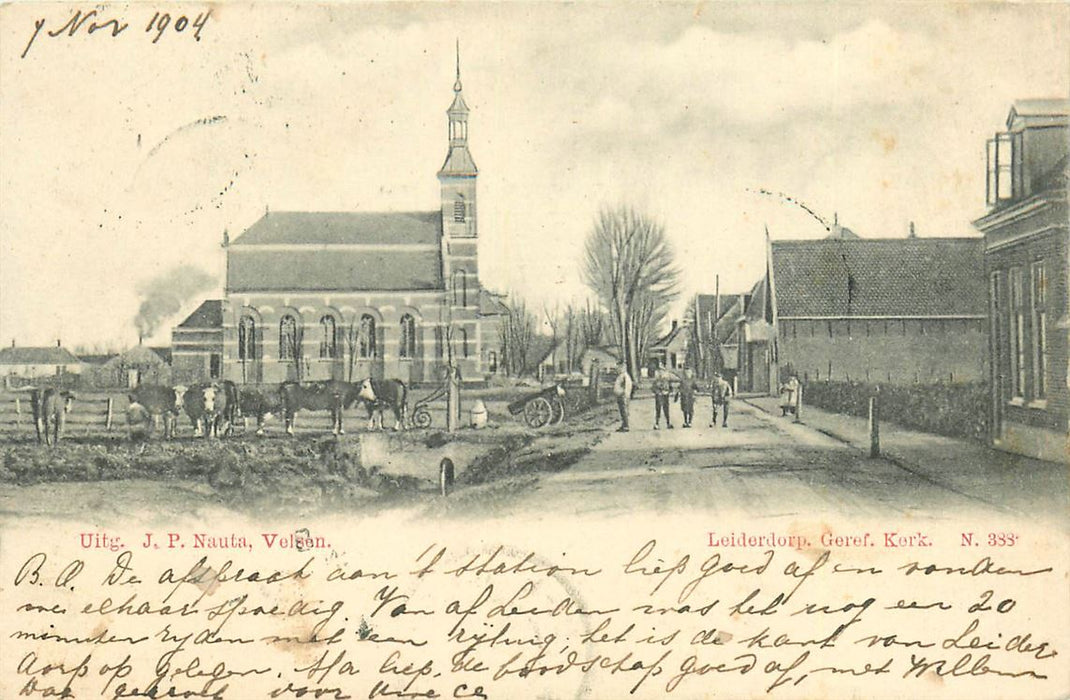 7 Nov 1904
Uitg. J. P. Nauta, Velsen.
Leiderdorp. Geref. Kerk. N. 388
De afspraak aan 't station liep goed af en vonden
we elkaar spoedig. Van af Leiden was het nog een 20
minuten ryden met een rytuig, het is de kant van Leider
dorp op gelegen. Ma liep de boodschap goed af, met Willem
voor